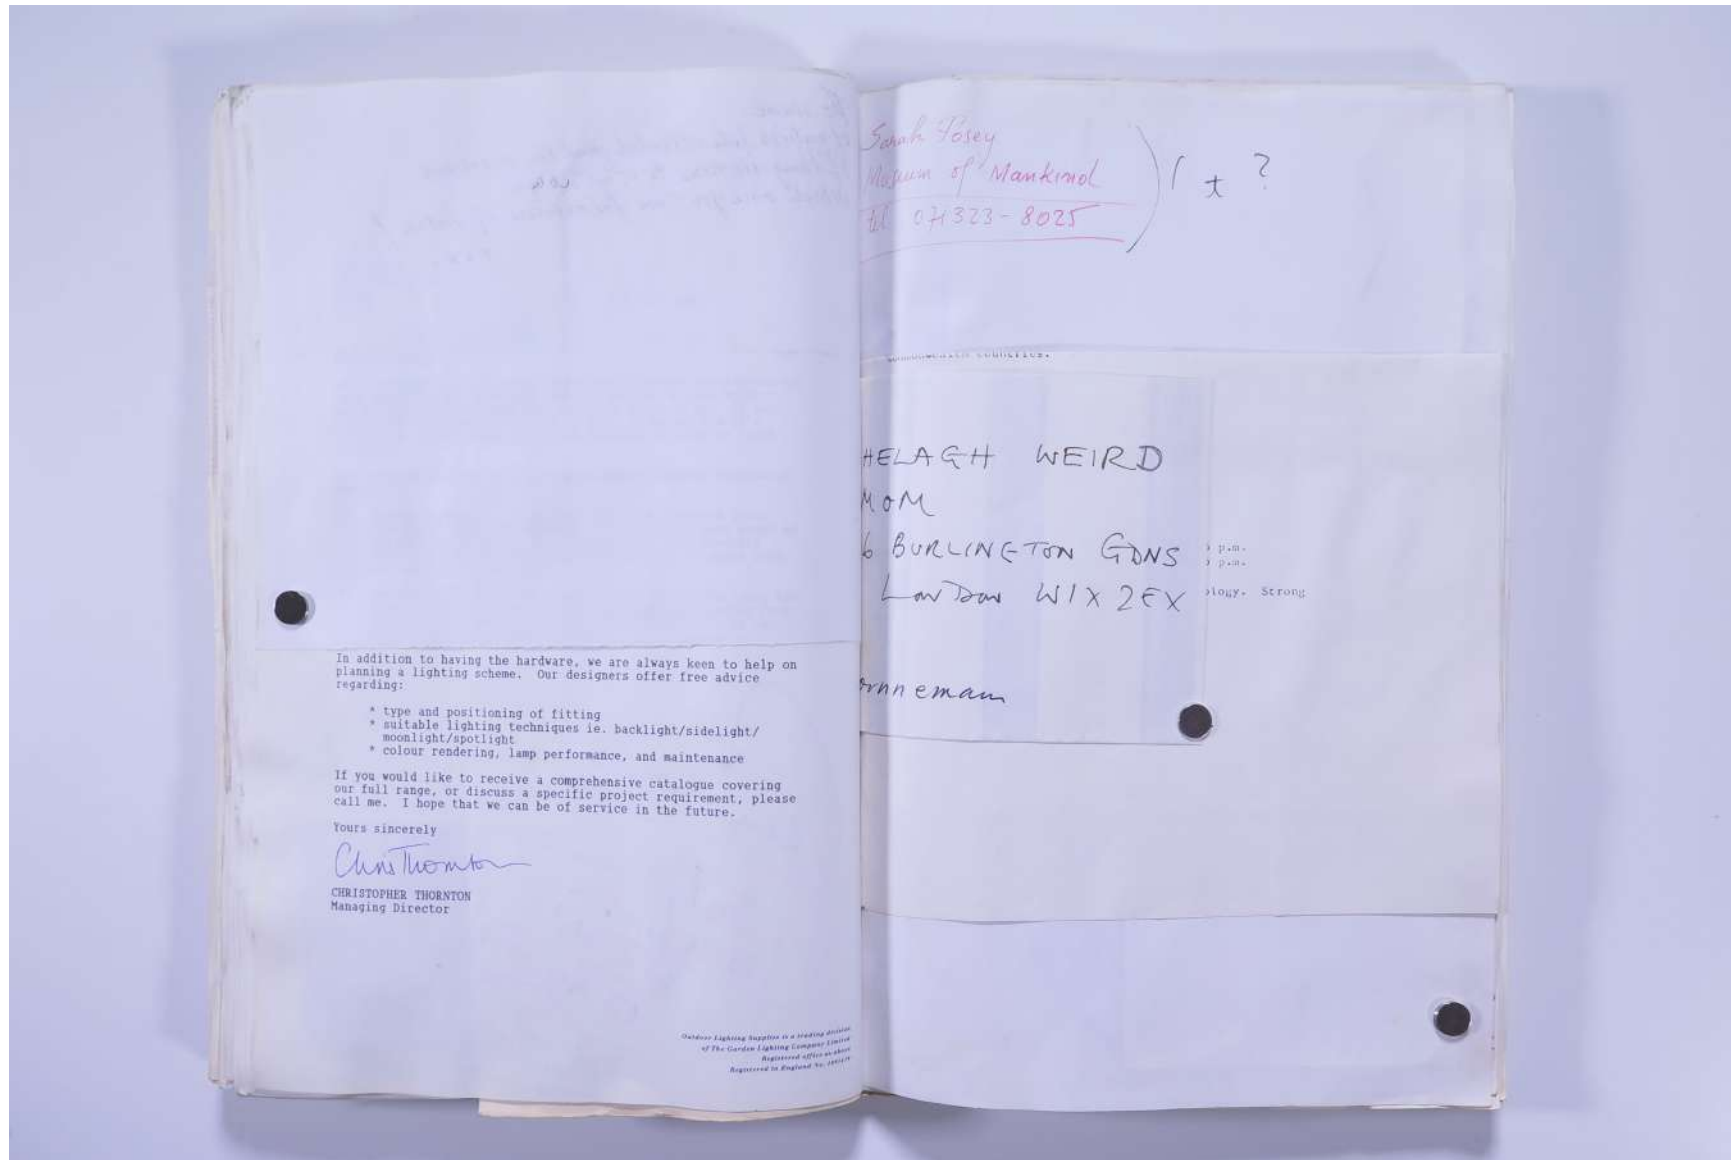 In addition to having the hardware, we are always keen to help on
planning a lighting scheme. Our designers offer free advice
regarding:
* type and positioning of fitting
* suitable lighting techniques ie. backlight/sidelight/
moonlight/spotlight
* colour rendering, lamp performance, and maintenance
If you would like to receive a comprehensive catalogue covering
our full range, or discuss a specific project requirement, please
call me. I hope that we can be of service in the future.
Yours sincerely
Chris Thornton
CHRISTOPHER THORNTON
Managing Director
Outdoor Lighting Supplies is a trading division
of The Garden Lighting Company Limited
Registered office as above
Registered in England No.
Sarah Posey
Museum of Mankind
tel 071 323-8025
?
countries.
HELAGH WEIRD
MOM
6 BURLINGTON GDNS
London W1X 2EX
p.m.
p.m.
ology. Strong
onnemann